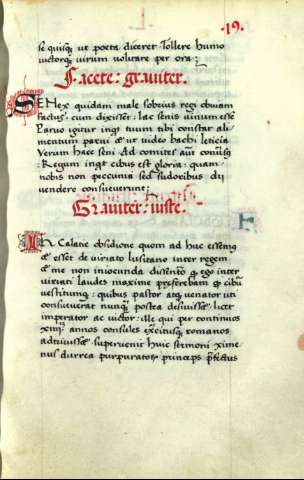 19.
se quisq; ut poeta diceret Tollere humo
victorq; virum volitare per ora;
Facete: graviter.
SEnex quidam male sobrius regi obviam
factus: cum dixisset: lac senis vinum esse
Parvo igitur ingt tuum tibi constat ali
mentum patri & ut video bachi leticia
Verum haec seni Ad comites autem
Regum ingt cibus est gloria: quam
nobis non peccunia sed sudoribus di
vendere consueverunt;
Graviter: iuste.
IN Calatie obsidione quom ad huc essemq
& esset de viriato lusitano inter regem
& me non iniocunda dissentio & ego inter
viriati laudes maxime preferebam & cibum
vestitumq: quibus pastor atq venator uti
consueverat nunq postea desivisset licet
imperator ac victor: ille qui per continuos
xiiij annos consules exercitusq romanos
adtrivisset supervenit huic sermoni xime
nus durrea purpuratorum princeps prefectus